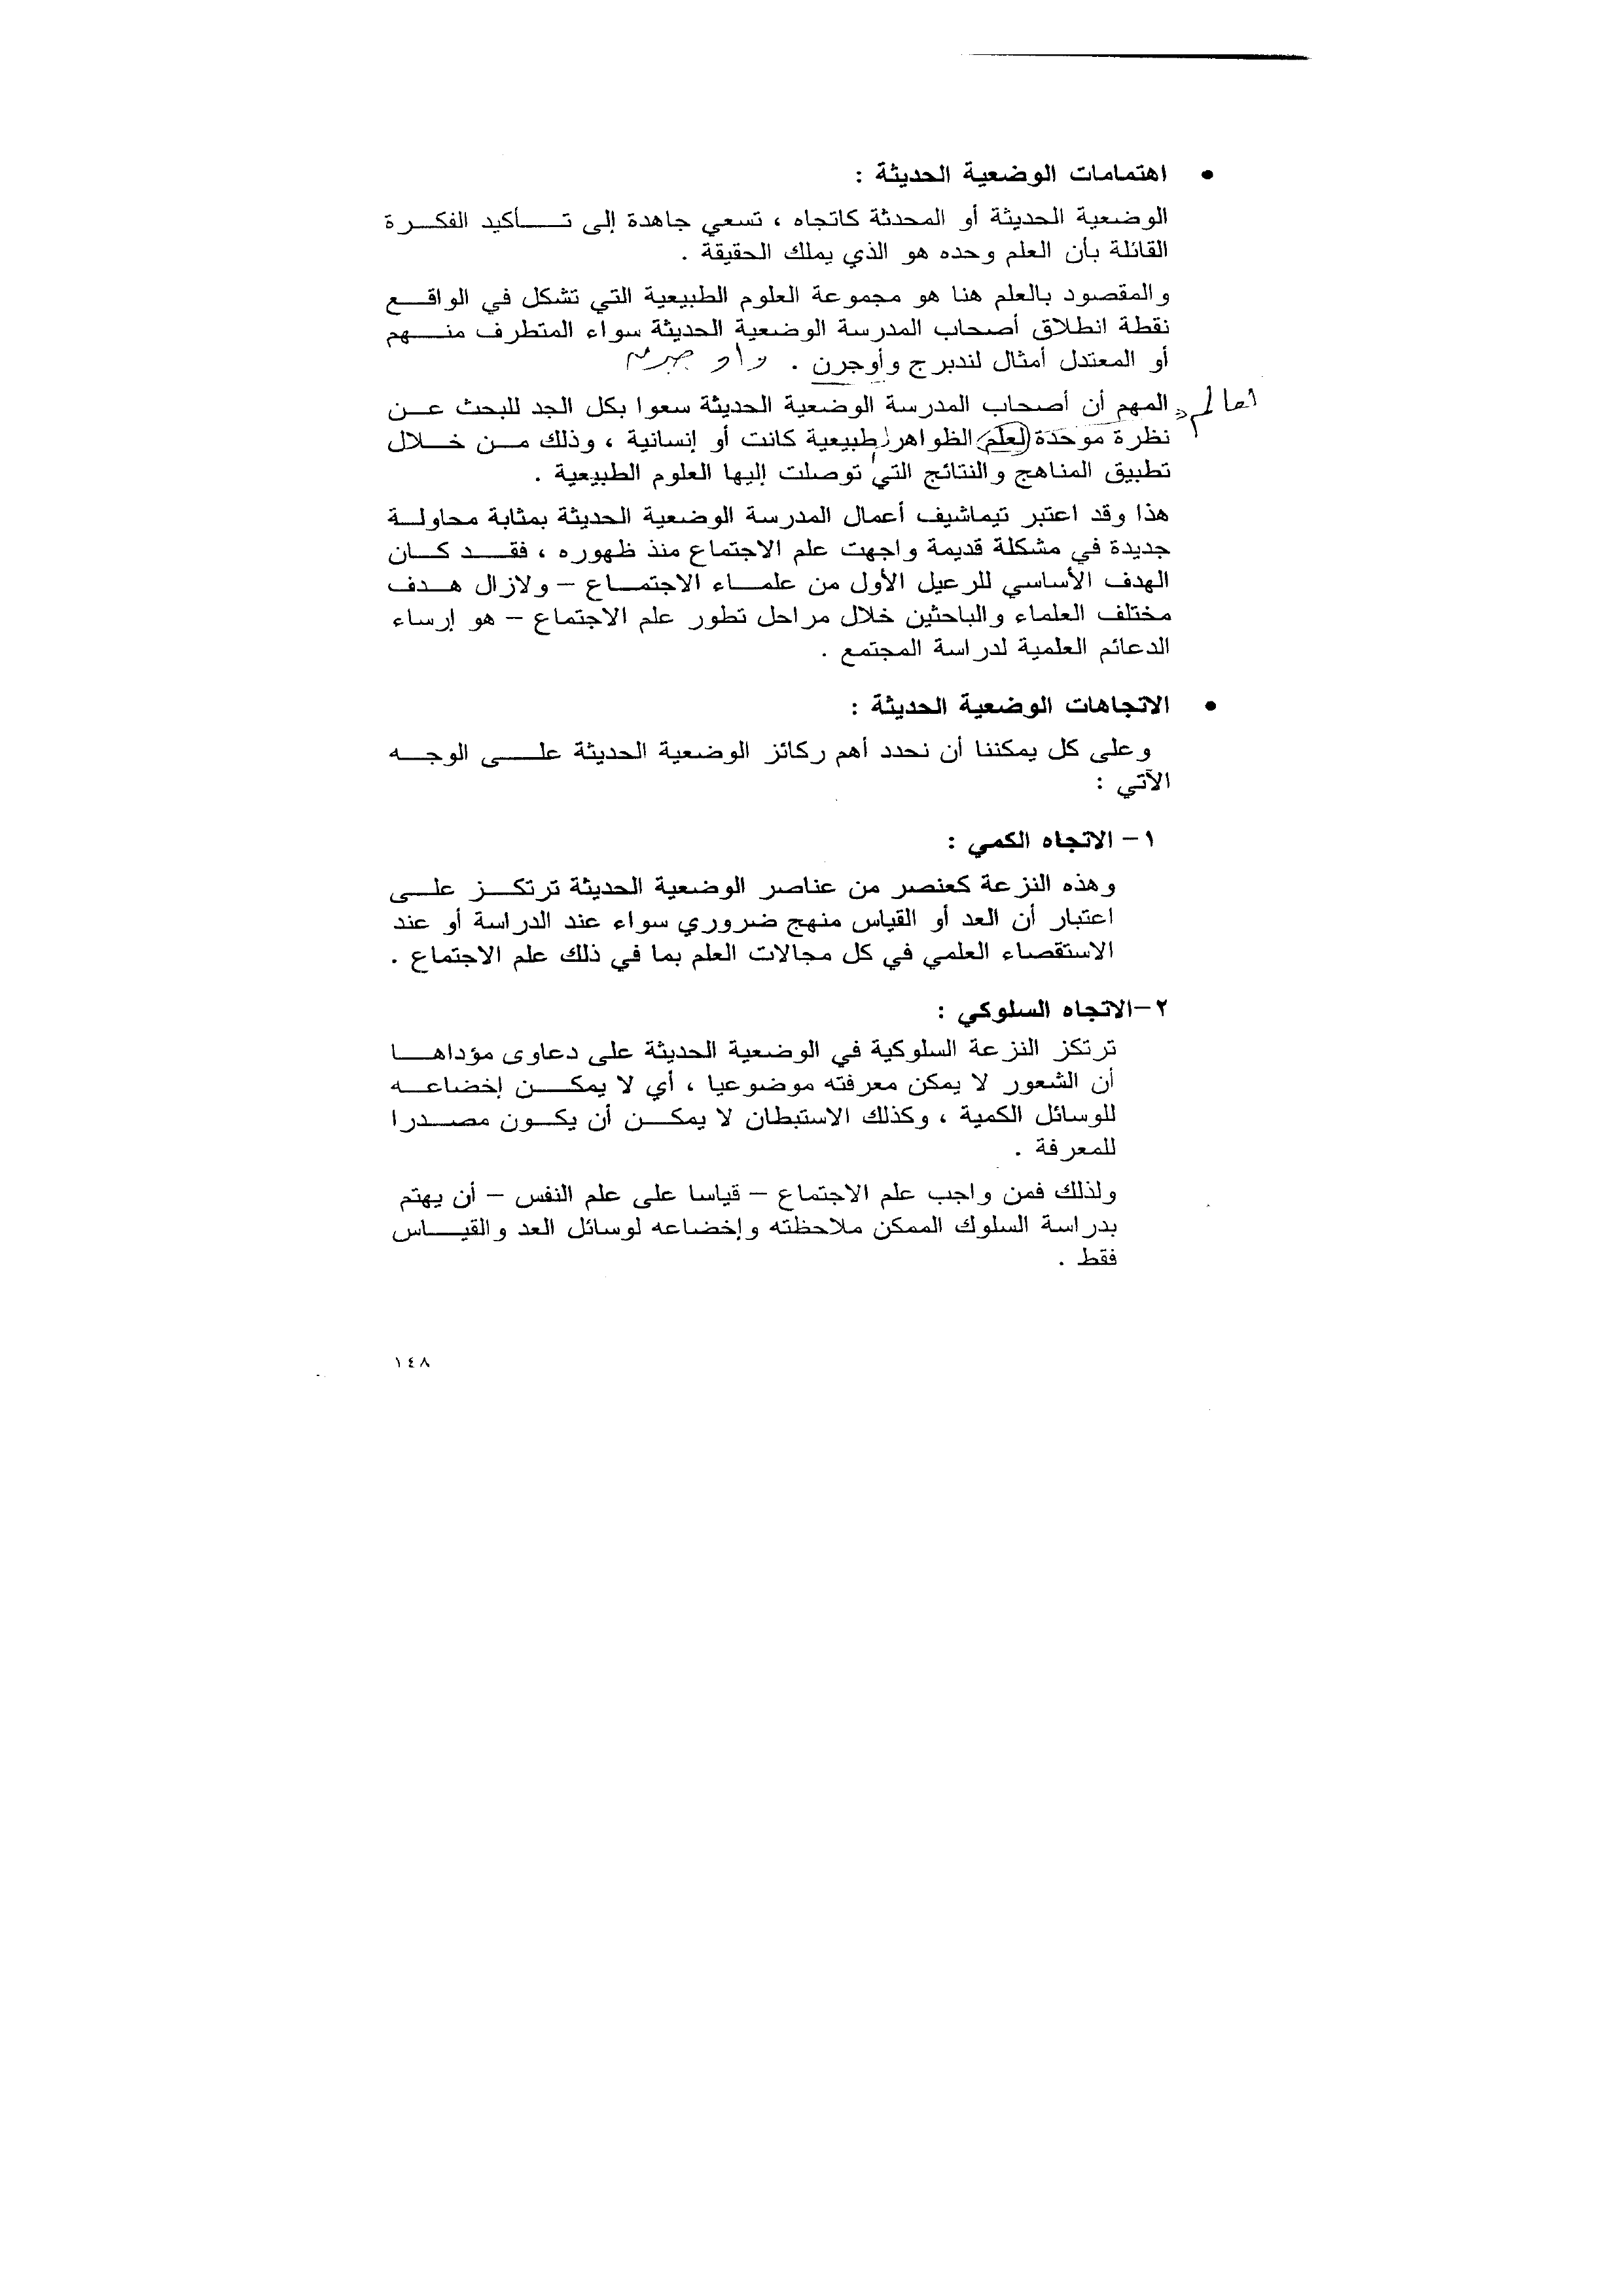 • اهتمامات الوضعية الحديثة :
الوضعية الحديثة أو المحدثة كاتجاه ، تسعي جاهدة إلى تأكيد الفكرة
القائلة بأن العلم وحده هو الذي يملك الحقيقة .
والمقصود بالعلم هنا هو مجموعة العلوم الطبيعية التي تشكل في الواقع
نقطة انطلاق أصحاب المدرسة الوضعية الحديثة سواء المتطرف منهم
أو المعتدل أمثال لندبرج وأوجرن .
المهم أن أصحاب المدرسة الوضعية الحديثة سعوا بكل الجد للبحث عن
نظرة موحدة لعلم الظواهر طبيعية كانت أو إنسانية ، وذلك من خلال
تطبيق المناهج والنتائج التي توصلت إليها العلوم الطبيعية .
هذا وقد اعتبر تيماشيف أعمال المدرسة الوضعية الحديثة بمثابة محاولة
جديدة في مشكلة قديمة واجهت علم الاجتماع منذ ظهوره ، فقد كان
الهدف الأساسي للرعيل الأول من علماء الاجتماع – ولازال هدف
مختلف العلماء والباحثين خلال مراحل تطور علم الاجتماع – هو إرساء
الدعائم العلمية لدراسة المجتمع .
• الاتجاهات الوضعية الحديثة :
وعلى كل يمكننا أن نحدد أهم ركائز الوضعية الحديثة على الوجه
الآتي :
١– الاتجاه الكمي :
وهذه النزعة كعنصر من عناصر الوضعية الحديثة ترتكز على
اعتبار أن العد أو القياس منهج ضروري سواء عند الدراسة أو عند
الاستقصاء العلمي في كل مجالات العلم بما في ذلك علم الاجتماع .
٢–الاتجاه السلوكي :
ترتكز النزعة السلوكية في الوضعية الحديثة على دعاوى مؤداها
أن الشعور لا يمكن معرفته موضوعيا ، أي لا يمكن إخضاعه
للوسائل الكمية ، وكذلك الاستبطان لا يمكن أن يكون مصدرا
للمعرفة .
ولذلك فمن واجب علم الاجتماع – قياسا على علم النفس – أن يهتم
بدراسة السلوك الممكن ملاحظته وإخضاعه لوسائل العد والقياس
فقط .
١٤٨